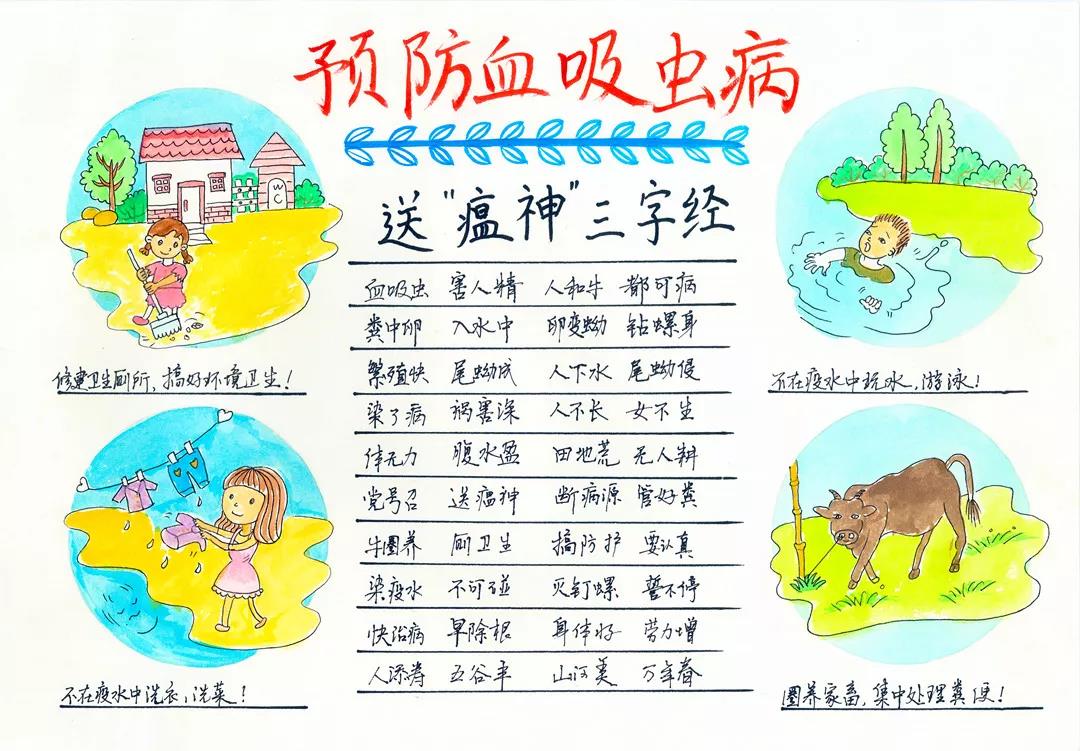 预防血吸虫病
送“瘟神”三字经
血吸虫 害人精 人和牛 都可病
粪中卵 入水中 卵变蚴 钻螺身
繁殖快 尾蚴成 人下水 尾蚴侵
染了病 祸害深 人不长 女不生
体无力 腹水盈 田地荒 无人耕
党号召 送瘟神 断病源 管好粪
牛圈养 厕卫生 搞防护 要认真
染疫水 不可碰 灭钉螺 誓不停
快治病 早除根 身体好 劳力增
人添寿 五谷丰 山河美 万年春
WC
修建卫生厕所，搞好环境卫生！
不在疫水中玩水，游泳！
不在疫水中洗衣，洗菜！
圈养家畜，集中处理粪便！